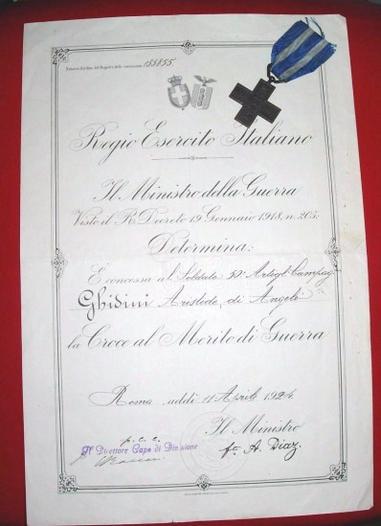 Numero d'ordine del Registro delle concessioni 155855
Regio Esercito Italiano
Il Ministro della Guerra
Visto il R. Decreto 19 Gennaio 1918, n. 205:
Determina:
È concessa al Soldato 52° Artigl. Campag.
Ghidini Aristide, di Angelo
la Croce al Merito di Guerra
Roma, addì 11 Aprile 1924
Il Ministro
p. c. c.
Il Direttore Capo di Divisione
fto A. Diaz